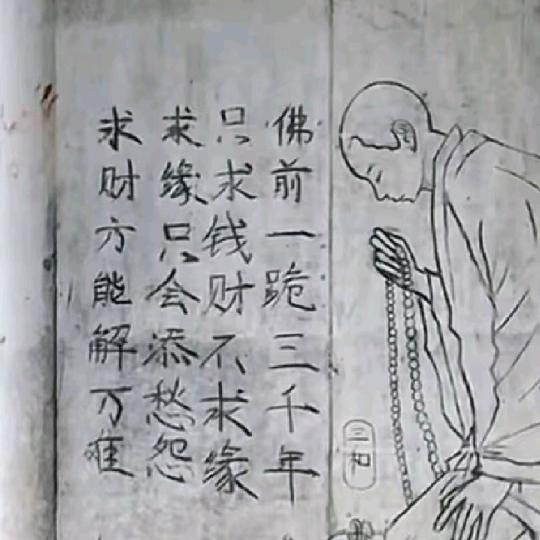 佛前一跪三千年
只求钱财不求缘
求缘只会添愁怨
求财方能解万难
三和